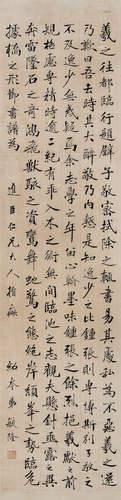 羲之往都臨行題壁子敬密拭除之輒書易其處私為不惡羲還見
乃歎曰吾去時真大醉敬乃內慙是知逸少之比鍾張則專博斯別子敬之
不及逸少無或疑焉余志學之年留心翰墨味鍾張之餘烈挹羲獻之前
規極慮專精時逾二紀有乖入木之術無間臨池之志觀夫懸針垂露之異
奔雷墜石之奇鴻飛獸駭之資鸞舞蛇驚之態絕岸頹峯之勢臨危
據槁之形節書譜為
道臣仁兄大人指疵
紹泰弟敏隆